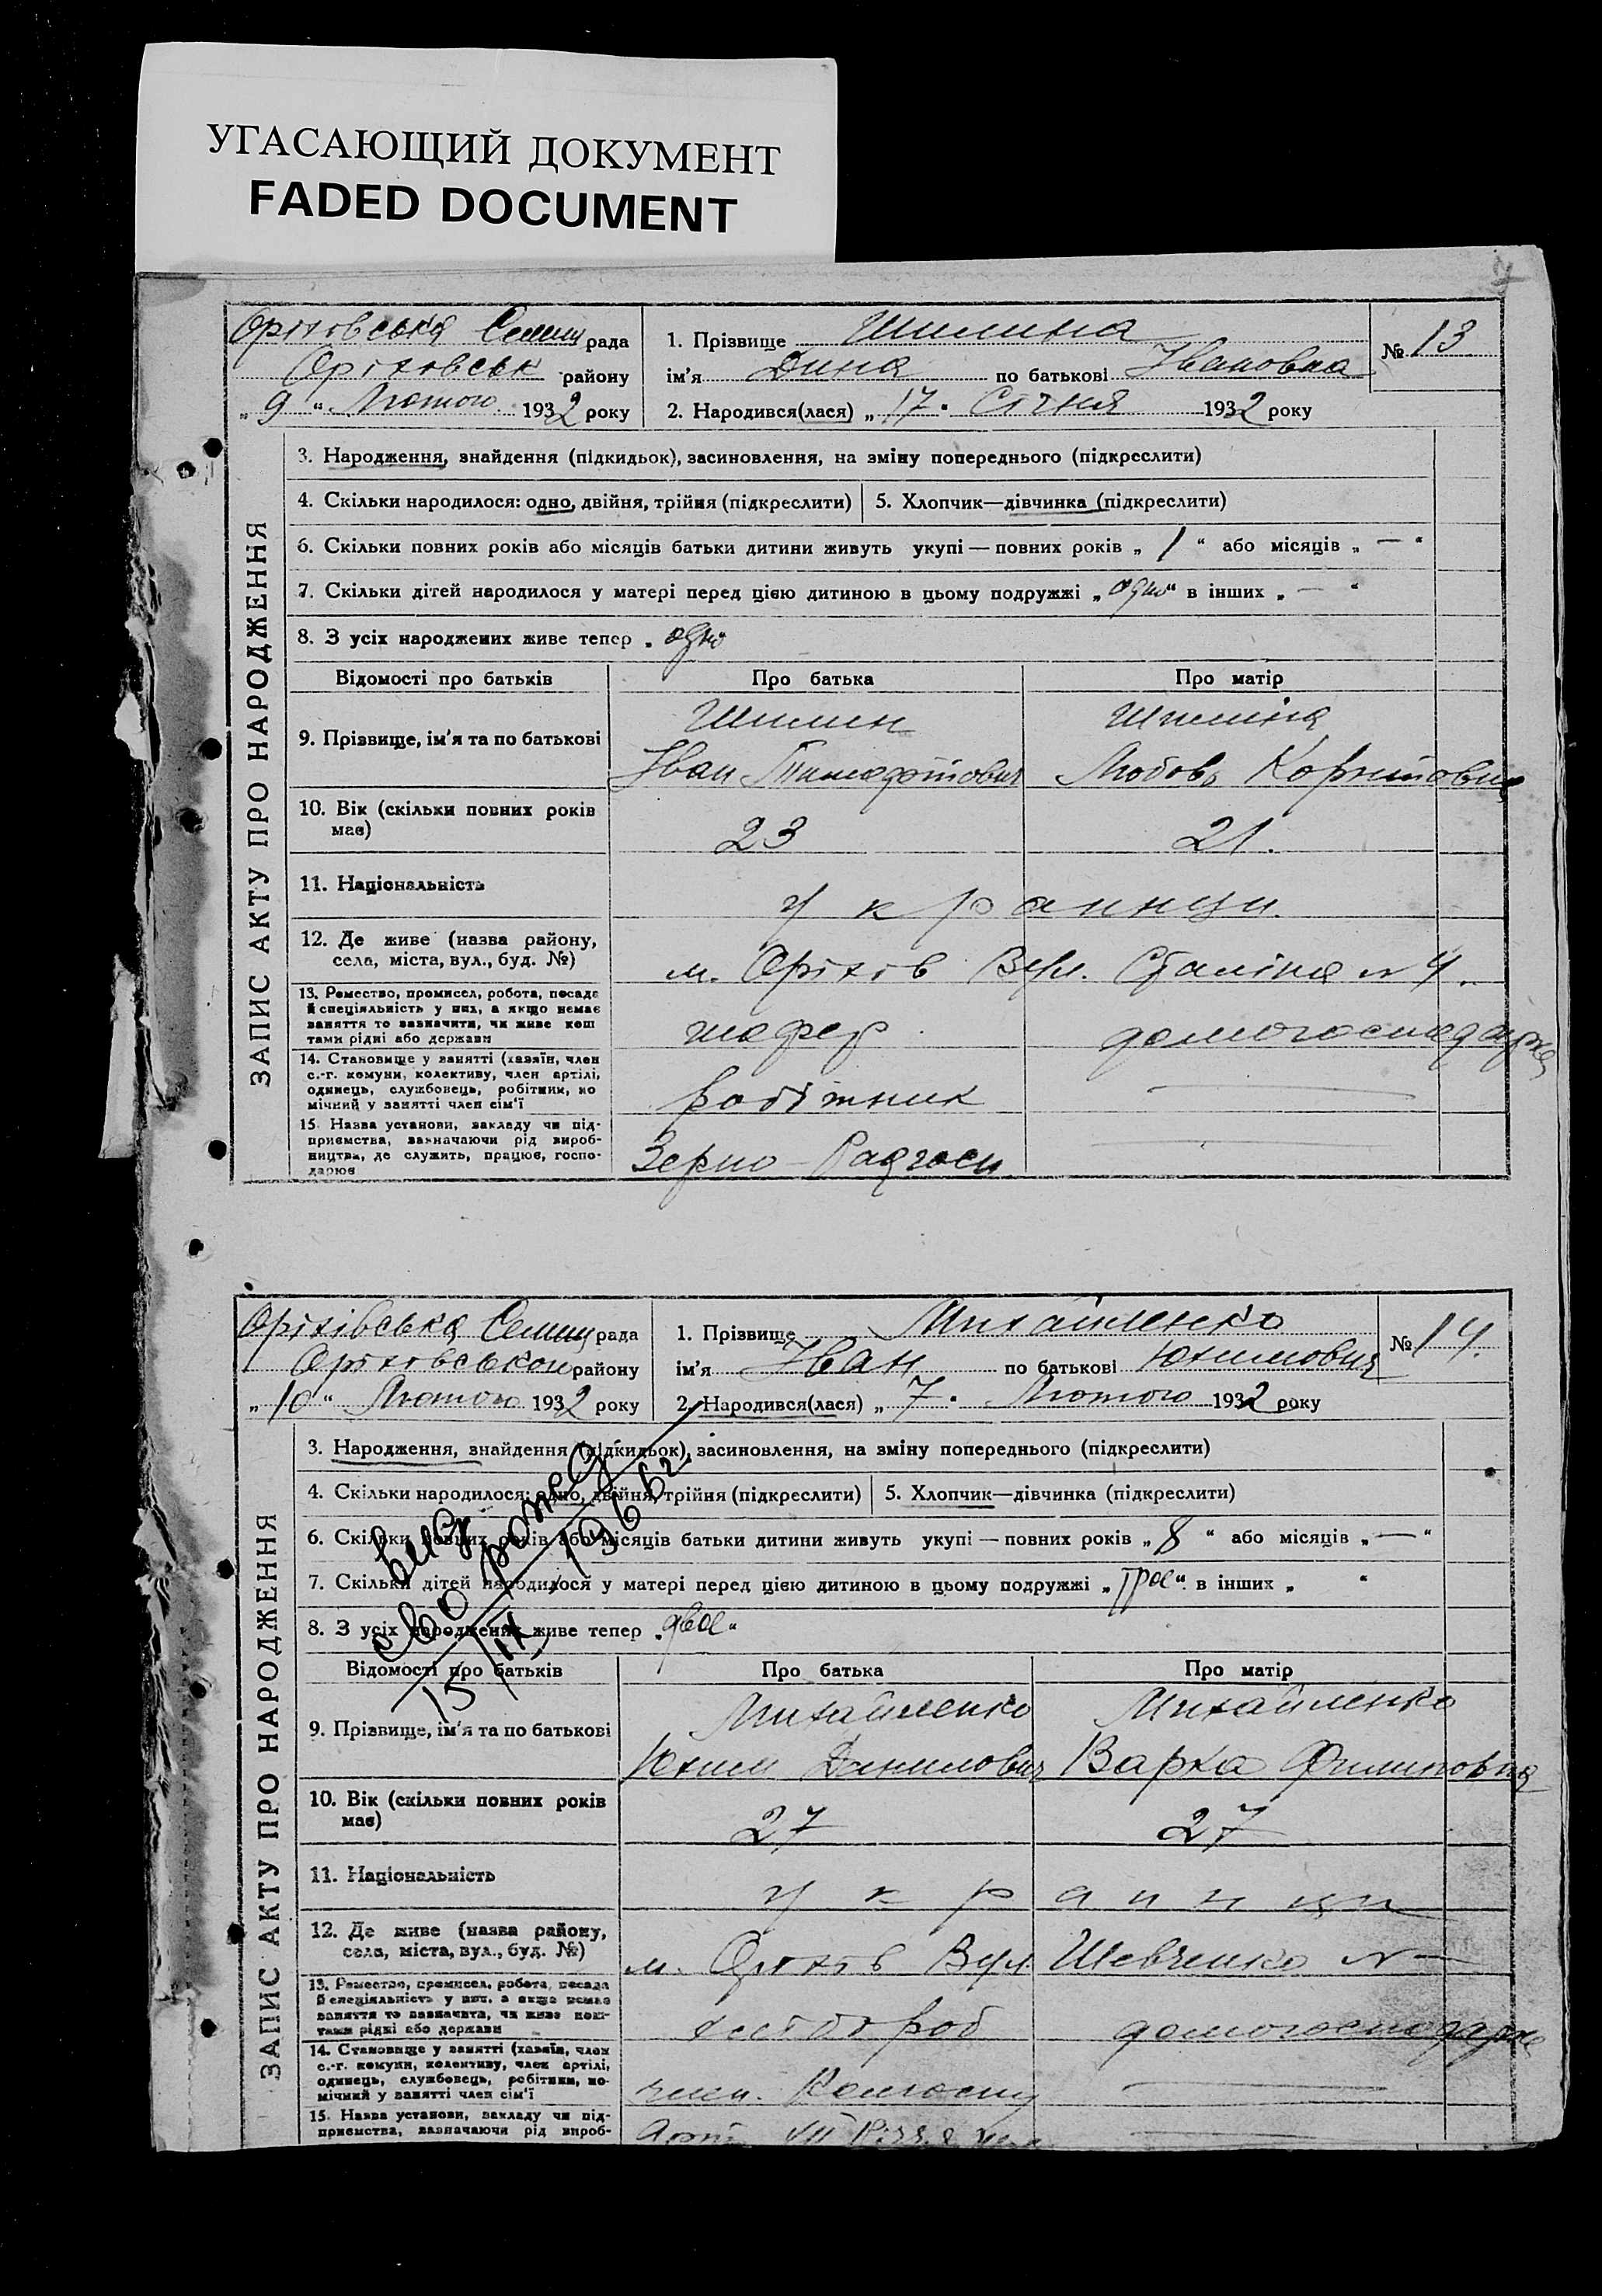 УГАСАЮЩИЙ ДОКУМЕНТ
FADED DOCUMENT
ЗАПИС АКТУ ПРО НАРОДЖЕННЯ
Оріховська Селищ рада
Оріховськ району
„ 9 “ Лютого 1932 року
1. Прізвище Шилина
№ 13
ім'я Дина по батькові Івановна
2. Народився(лася) „ 17 “ Січня 1932 року
3. Народження, знайдення (підкидьок), засиновлення, на зміну попереднього (підкреслити)
4. Скільки народилося: одно, двійня, трійня (підкреслити) 5. Хлопчик—дівчинка (підкреслити)
6. Скільки повних років або місяців батьки дитини живуть укупі — повних років „ 1 “ або місяців „ — “
7. Скільки дітей народилося у матері перед цією дитиною в цьому подружжі „ одно “ в інших „ — “
8. З усіх народжених живе тепер „ одно
Відомості про батьків Про батька Про матір
9. Прізвище, ім'я та по батькові
Шилин Шилина
Іван Любовь
10. Вік (скільки повних років має)
23 21.
11. Національність
украинци
12. Де живе (назва району, села, міста, вул., буд. №)
м. Оріхів Вул. Сталіна № 4
13. Ремество, промисел, робота, посада й спеціяльність у них, а якщо немає заняття то зазначити, чи живе коштами рідні або держави
шофер домогосподарка
14. Становище у занятті (хазяїн, член с.-г. комуни, колективу, член артілі, одинець, службовець, робітник, помічний у занятті член сім'ї
робітник —
15. Назва установи, закладу чи підприємства, зазначаючи рід виробництва, де служить, працює, господарює
Зерно-Радгосп —
ЗАПИС АКТУ ПРО НАРОДЖЕННЯ
Оріхівська Селищ рада
Оріховськои району
„ 10 “ Лютого 1932 року
1. Прізвище Михайленко
№ 14.
ім'я Іван по батькові Юхимович
2. Народився(лася) „ 7 “ Лютого 1932 року
3. Народження, знайдення (підкидьок), засиновлення, на зміну попереднього (підкреслити)
4. Скільки народилося: одно, двійня, трійня (підкреслити) 5. Хлопчик—дівчинка (підкреслити)
6. Скільки повних років або місяців батьки дитини живуть укупі — повних років „ 8 “ або місяців „ — “
7. Скільки дітей народилося у матері перед цією дитиною в цьому подружжі „ Трое “ в інших „ “
8. З усіх народжених живе тепер „ двое “
15/IX 1966 г.
Відомості про батьків Про батька Про матір
9. Прізвище, ім'я та по батькові
Михайленко Михайленко
Юхим Данилович Варка Филиповна
10. Вік (скільки повних років має)
27 27
11. Національність
украинци
12. Де живе (назва району, села, міста, вул., буд. №)
м. Оріхів Вул. Шевченко № —
13. Ремество, промисел, робота, посада й спеціяльність у них, а якщо немає заняття то зазначити, чи живе коштами рідні або держави
хлібороб домогосподарка
14. Становище у занятті (хазяїн, член с.-г. комуни, колективу, член артілі, одинець, службовець, робітник, помічний у занятті член сім'ї
член. Колгоспу —
15. Назва установи, закладу чи підприємства, зазначаючи рід вироб-